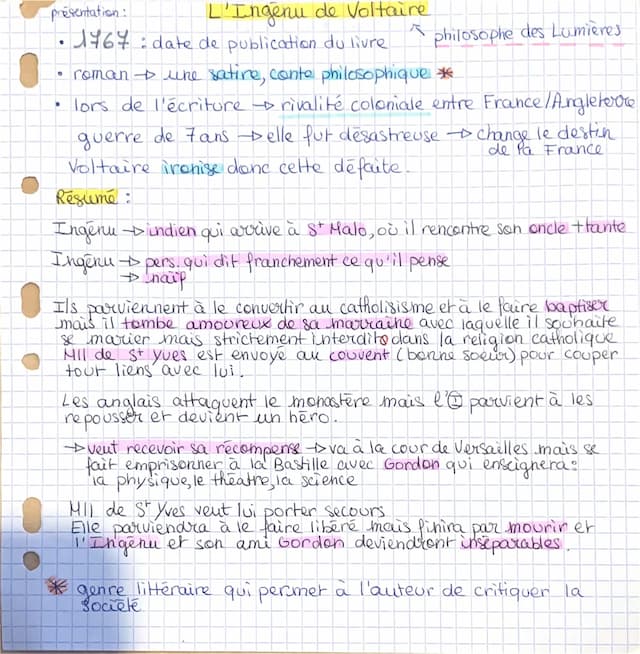 présentation :
L'Ingénu de Voltaire
philosophe des Lumières
• 1767 : date de publication du livre
• roman → une satire, conte philosophique *
• lors de l'écriture → rivalité coloniale entre France/Angleterre
guerre de 7 ans → elle fut désastreuse → change le destin
de la France
Voltaire ironise donc cette défaite.
Résumé :
Ingénu → indien qui arrive à St Malo, où il rencontre son oncle + tante
Ingénu → pers. qui dit franchement ce qu'il pense
→ naïf
Ils parviennent à le convertir au catholisisme et à le faire baptiser
mais il tombe amoureux de sa marraine avec laquelle il souhaite
se marier mais strictement interdit dans la religion catholique
Mll de St Yves est envoyé au couvent (bonne soeur) pour couper
tout liens avec lui.
Les anglais attaquent le monastère mais l'I parvient à les
repousser et devient un héro.
→ veut recevoir sa récompense → va à la cour de Versailles mais se
fait emprisonner à la Bastille avec Gordon qui enseignera :
la physique, le théatre, la science
Mll de St Yves veut lui porter secours
Elle parviendra à le faire libéré mais finira par mourir et
l'Ingénu et son ami Gordon deviendront inséparables.
* genre littéraire qui permet à l'auteur de critiquer la
société